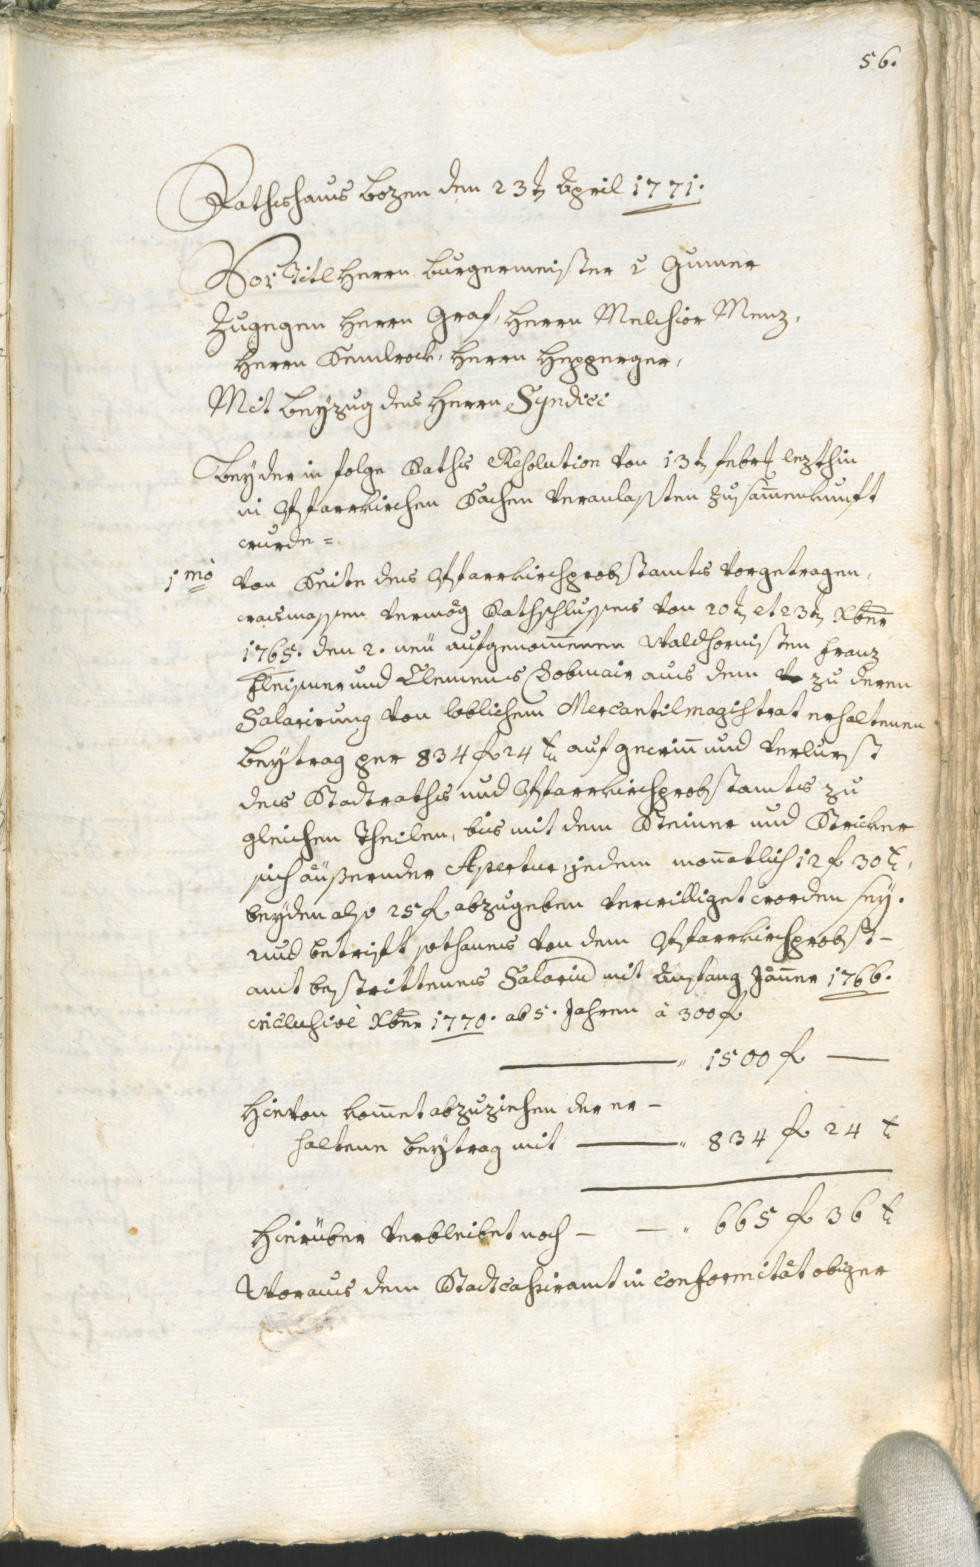 56.
Rathshaus Bozen den 23ten April 1771.
Vor Titl Herrn Burgermeister v Gumer
Zugegen Herrn Graf, Herrn Melchior Menz,
Herrn Kemlrock, Herrn Hepperger,
Mit Beÿzug des Herrn Syndici
Beÿ der in folge Raths Resolution von 13ten febr lezthin
in Pfarrkirchen Sachen veranlaßten zusam̄enkunft
wurde =
1mo von Seite des Pfarrkirchprobstamts vorgetragen,
wasmassen vermög Rathschlusses von 20ten et 23ten Xber
1765. den 2. neü aufgenom̄enen Waldhornisten Franz
Fleismer und Clemens Dobmair aus dem zu deren
Salarirung von loblichem Mercantilmagistrat erhaltenen
Beÿtrag per 834 f 24 x auf gewin̄ und Verlurst
des Stadtraths und Pfarrkirchprobstamts zu
gleichen Theilen, bis mit dem Steiner und Stricker
sich äußernder Apertur, jedem monatlich 12 f 30 x,
beÿden also 25 f abzugeben verwilliget worden seÿ.
und betrift sothanes von dem Pfarrkirchprobst-
amt bestrittenes Salario mit Anfang Jäner 1766.
inclusivè Xber 1770. ab 5. Jahren à 300 f
" 1500 f —
Hievon kom̄et abzuziehen der er-
haltene Beÿtrag mit — " 834 f 24 x
Hierüber verbleibet noch — — " 665 f 36 x
Woraus dem Stadtcassiramt in conformität obiger